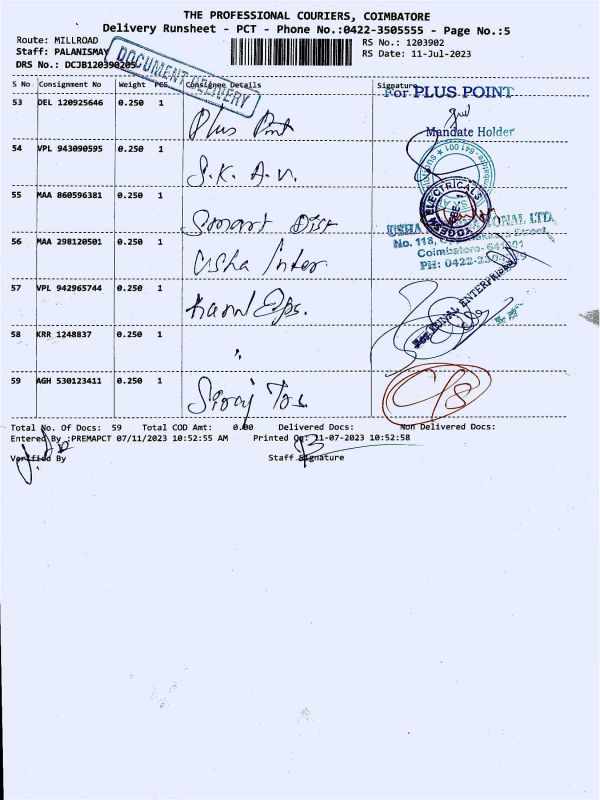 THE PROFESSIONAL COURIERS, COIMBATORE
Delivery Runsheet - PCT - Phone No.:0422-3505555 - Page No.:5
Route: MILLROAD
RS No.: 1203902
Staff: PALANISMAY
RS Date: 11-Jul-2023
DRS No.: DCJB120390205
DOCUMENT DELIVERY
S No Consignment No Weight PCS Consignee Details Signature
For PLUS POINT
53 DEL 120925646 0.250 1 Plus Pont
Mandate Holder
54 VPL 943090595 0.250 1 S.K. A.n.
641 001
YOGESH ELECTRICALS
55 MAA 860596381 0.250 1 Smart Dist
USHA NATIONAL LTD.
No. 118,
56 MAA 298120501 0.250 1 Usha Inter.
Coimbatore- 641001
PH: 0422-
57 VPL 942965744 0.250 1
For KUNAL ENTERPRISES
58 KRR 1248837 0.250 1 "
59 AGH 530123411 0.250 1
Total No. Of Docs: 59 Total COD Amt: 0.00 Delivered Docs: Non Delivered Docs:
Entered By :PREMAPCT 07/11/2023 10:52:55 AM Printed On: 11-07-2023 10:52:58
Verified By Staff Signature